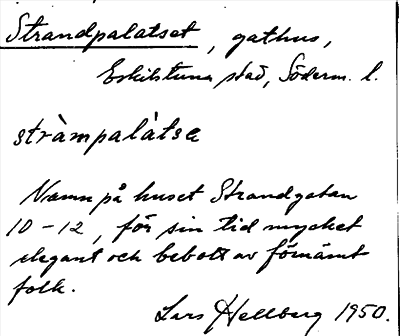 Strandpalatset, gathus,
Eskilstuna stad, Söderm. l.
stràmpalátsə
Namn på huset Strandgatan
10-12, för sin tid mycket
elegant och bebott av förnämt
folk.
Lars Hellberg 1950.